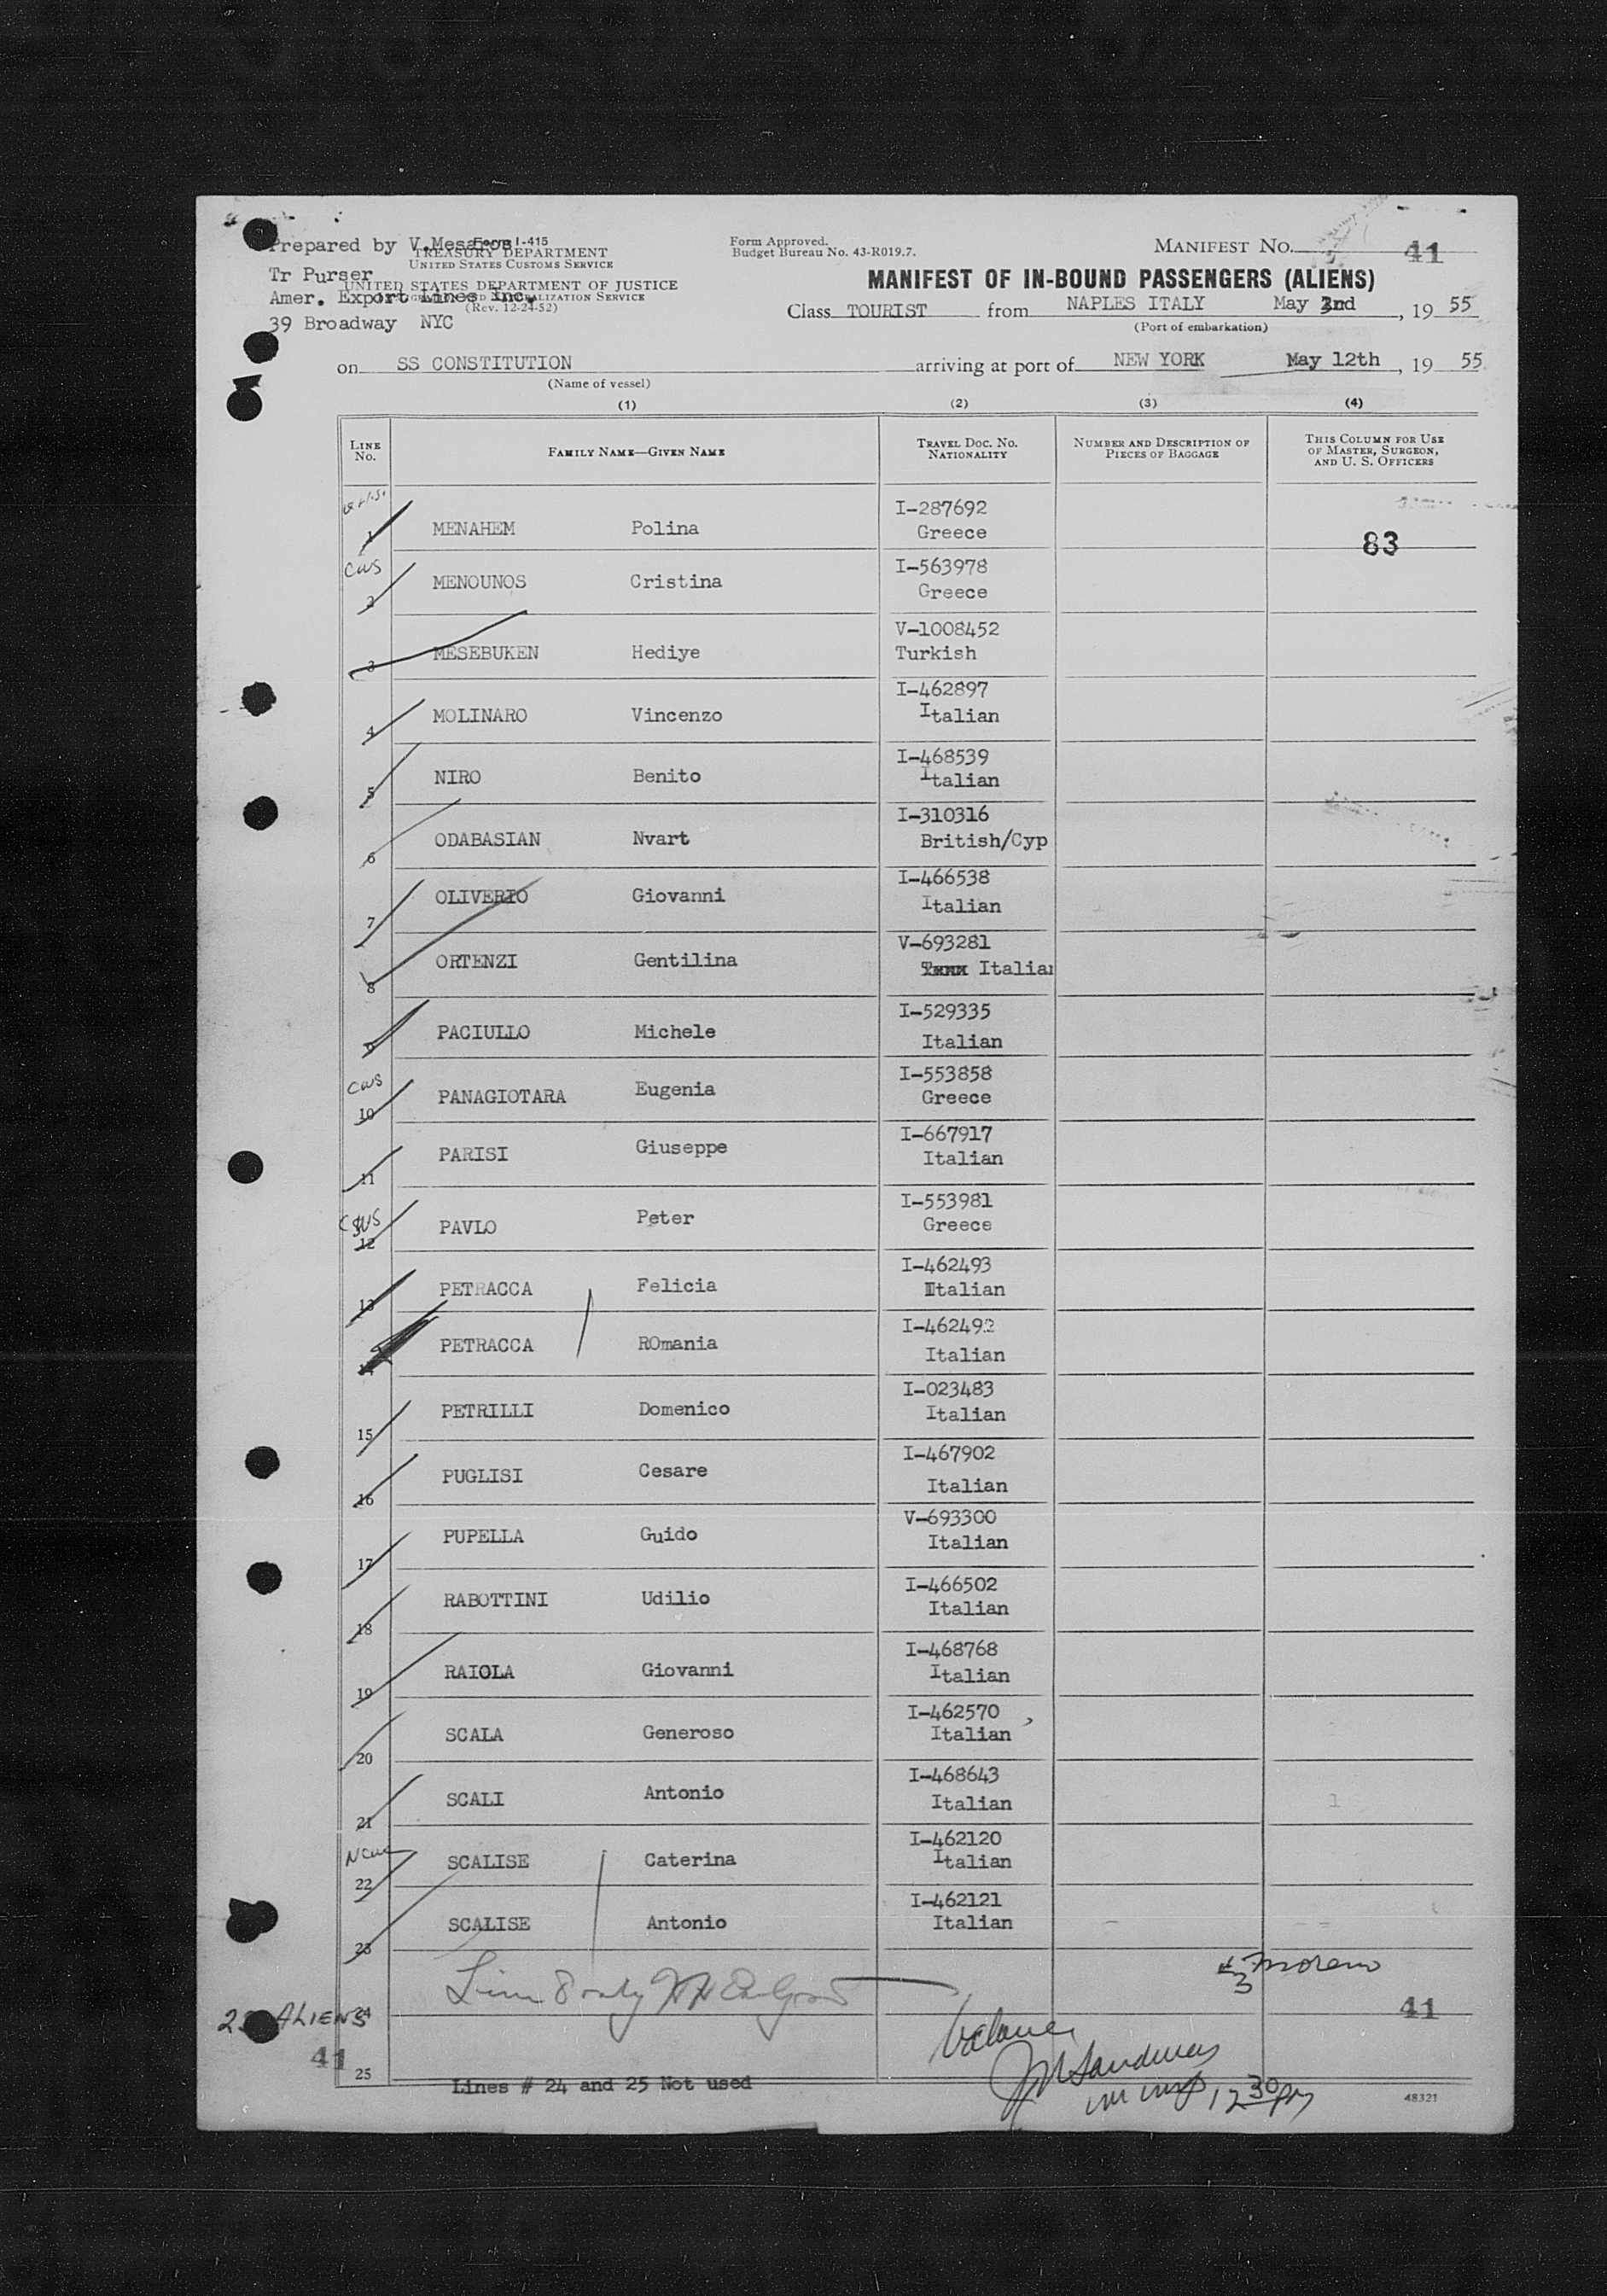 Prepared by V.Mesaros
Form I-415
TREASURY DEPARTMENT
UNITED STATES CUSTOMS SERVICE
Tr Purser
UNITED STATES DEPARTMENT OF JUSTICE
Amer. Export Lines Inc,
IMMIGRATION AND NATURALIZATION SERVICE
(Rev. 12-24-52)
39 Broadway NYC
Form Approved.
Budget Bureau No. 43-R019.7.
MANIFEST NO. 41
MANIFEST OF IN-BOUND PASSENGERS (ALIENS)
Class TOURIST from NAPLES ITALY May 2nd, 19 55
(Port of embarkation)
on SS CONSTITUTION arriving at port of NEW YORK May 12th, 19 55
(Name of vessel)
(1) (2) (3) (4)
LINE No. FAMILY NAME—GIVEN NAME TRAVEL DOC. NO. NATIONALITY NUMBER AND DESCRIPTION OF PIECES OF BAGGAGE THIS COLUMN FOR USE OF MASTER, SURGEON, AND U. S. OFFICERS
I-287692
1 MENAHEM Polina Greece 83
CWS
I-563978
2 MENOUNOS Cristina Greece
V-1008452
3 MESEBUKEN Hediye Turkish
I-462897
4 MOLINARO Vincenzo Italian
I-468539
5 NIRO Benito Italian
I-310316
6 ODABASIAN Nvart British/Cyp
I-466538
7 OLIVERIO Giovanni Italian
V-693281
8 ORTENZI Gentilina Italian
I-529335
9 PACIULLO Michele Italian
CWS
I-553858
10 PANAGIOTARA Eugenia Greece
I-667917
11 PARISI Giuseppe Italian
I-553981
12 PAVLO Peter Greece
I-462493
13 PETRACCA Felicia Italian
I-462492
14 PETRACCA ROmania Italian
I-023483
15 PETRILLI Domenico Italian
I-467902
16 PUGLISI Cesare Italian
V-693300
17 PUPELLA Guido Italian
I-466502
18 RABOTTINI Udilio Italian
I-468768
19 RAIOLA Giovanni Italian
I-462570
20 SCALA Generoso Italian
I-468643
21 SCALI Antonio Italian
I-462120
22 SCALISE Caterina Italian
I-462121
23 SCALISE Antonio Italian
Line 8 only
Moreno
24 ALIENS 41
41 25
Lines # 24 and 25 Not used
12 30 pm
48321